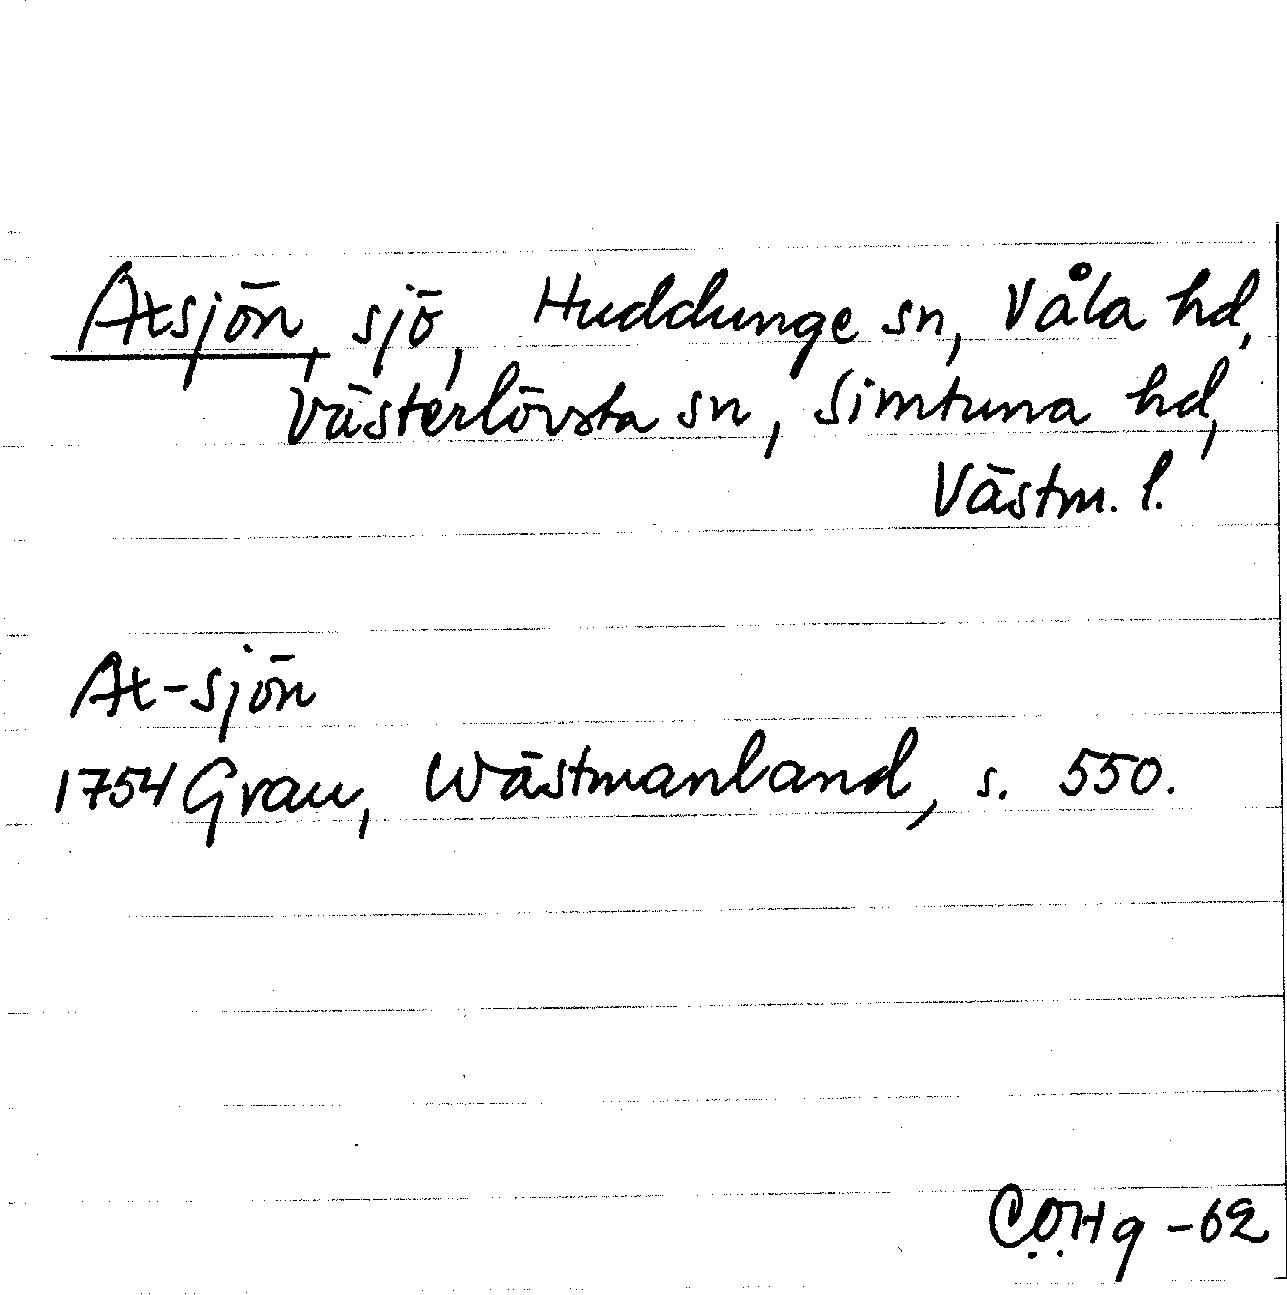 Atsjön, sjö, Huddunge sn, Våla hd,
Västerlövsta sn, Simtuna hd,
Västm. l.
At-sjön
1754 Grau, Wästmanland, s. 550.
-62